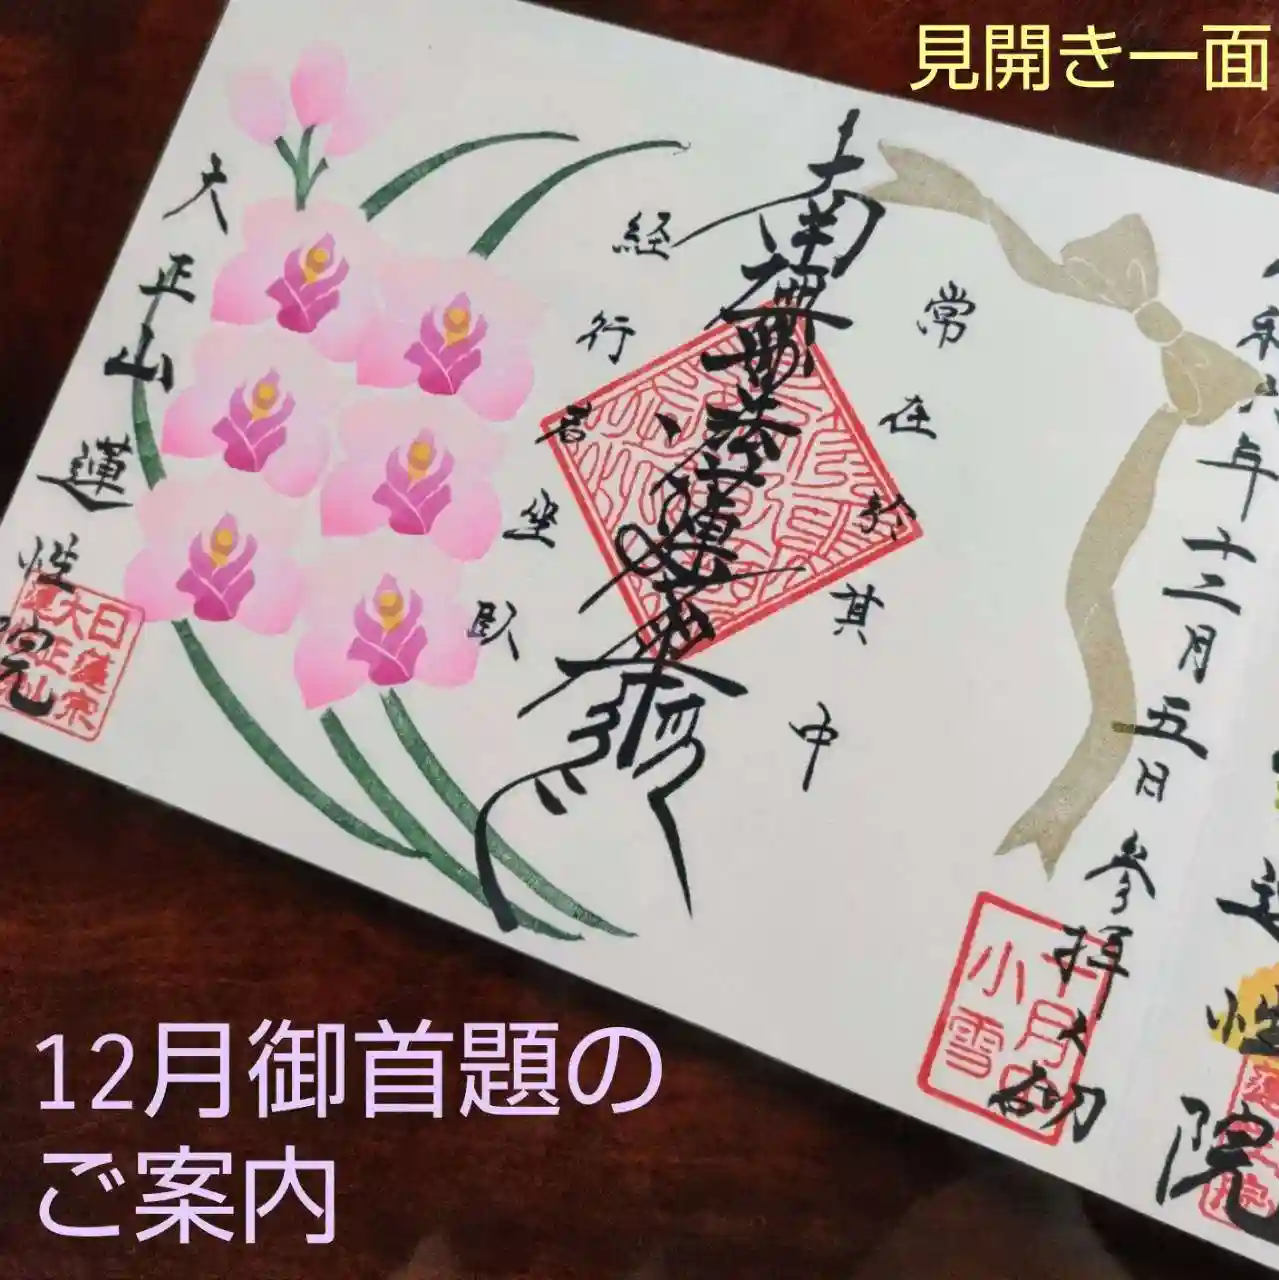 見開き一面
令和六年十二月五日参拝大切
常在於其中
南無妙法蓮華経
経行若坐臥
大正山蓮性院
日蓮宗
大正山
小雪
院
12月御首題の
ご案内